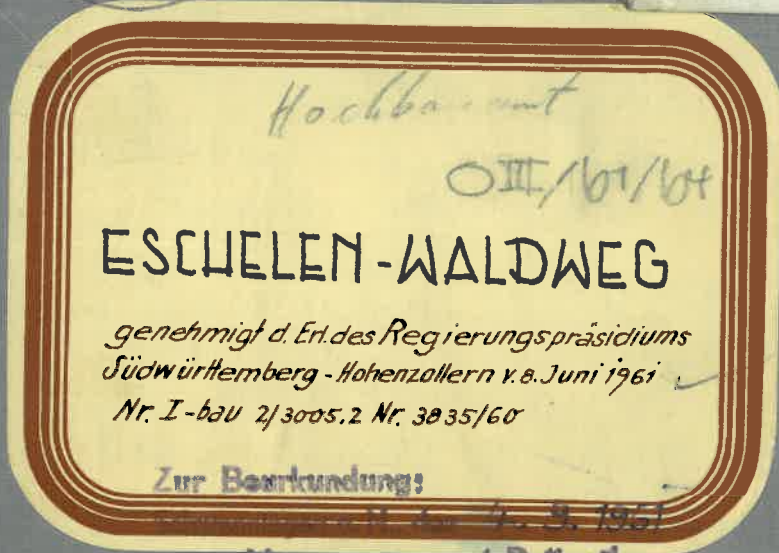 Hochbauamt
O III/61/64
ESCHELEN-WALDWEG
genehmigt d. Erl. des Regierungspräsidiums
Südwürttemberg-Hohenzollern v. 8. Juni 1961
Nr. I-bau 2/3005.2 Nr. 3835/60
Zur Beurkundung:
4. 9. 1961